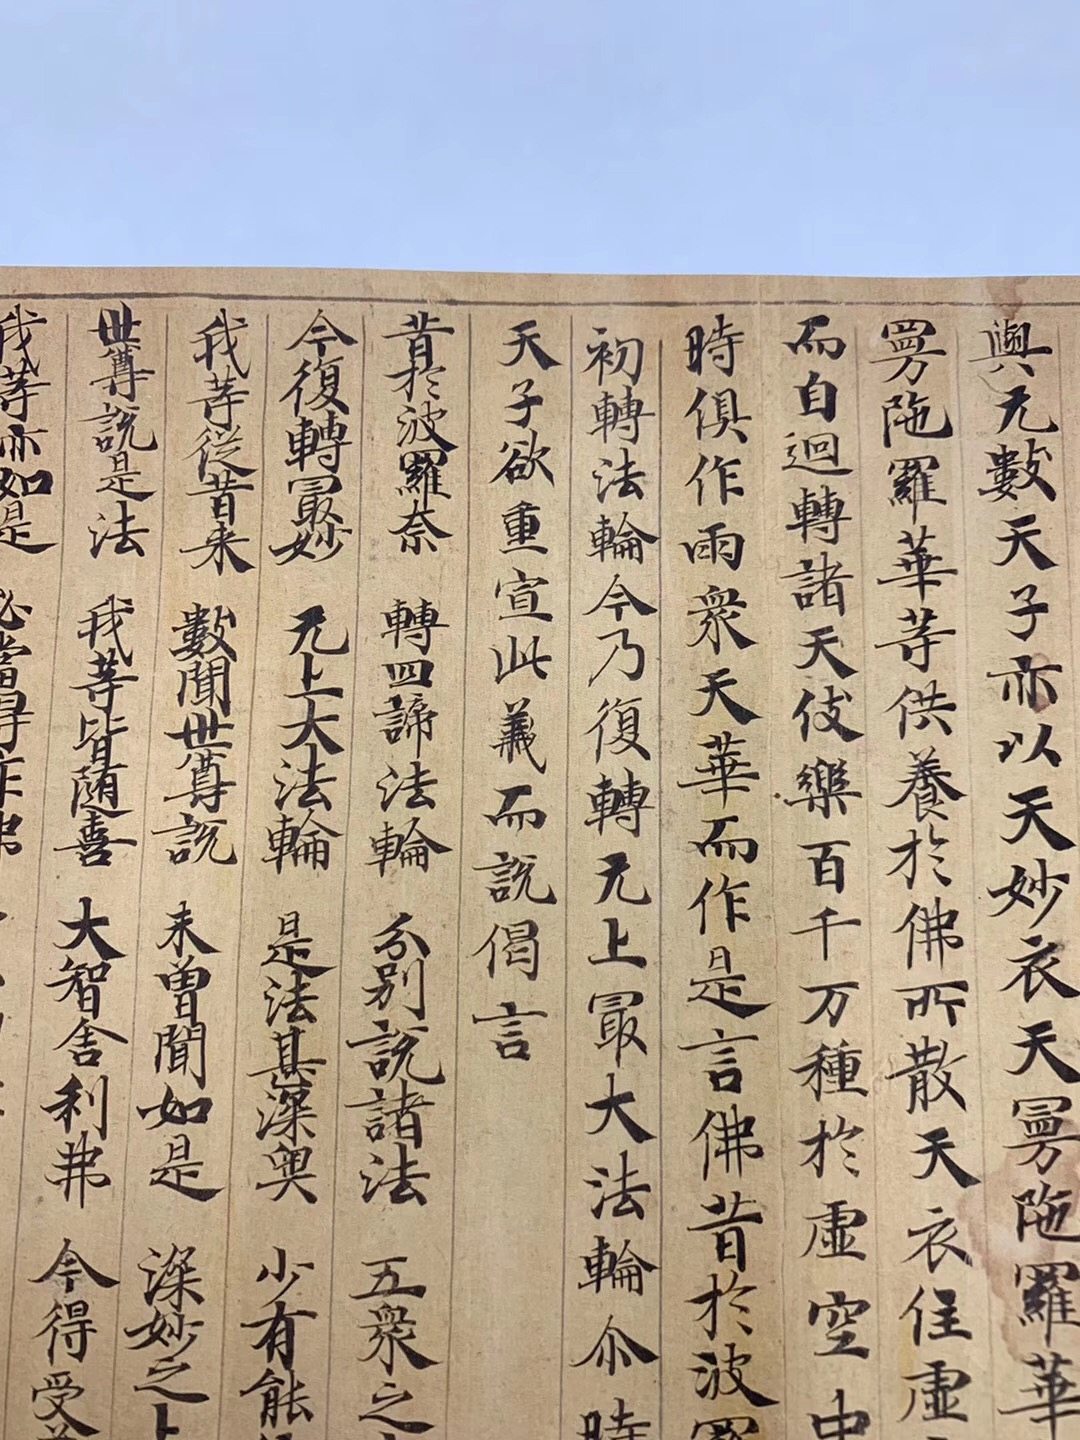 與无數天子亦以天妙衣天曼陁羅華
曼陁羅華等供養於佛所散天衣住虛
而自迴轉諸天伎樂百千万種於虛空中
時俱作雨衆天華而作是言佛昔於波羅
初轉法輪今乃復轉无上冣大法輪尒時
天子欲重宣此義而說偈言
昔於波羅奈 轉四諦法輪 分別說諸法 五衆之
今復轉冣妙 无上大法輪 是法甚深奥 少有能
我等從昔来 數聞世尊說 未曽聞如是 深妙之上
世尊說是法 我等皆随喜 大智舍利弗 今得受
我等亦如是 必當得作佛